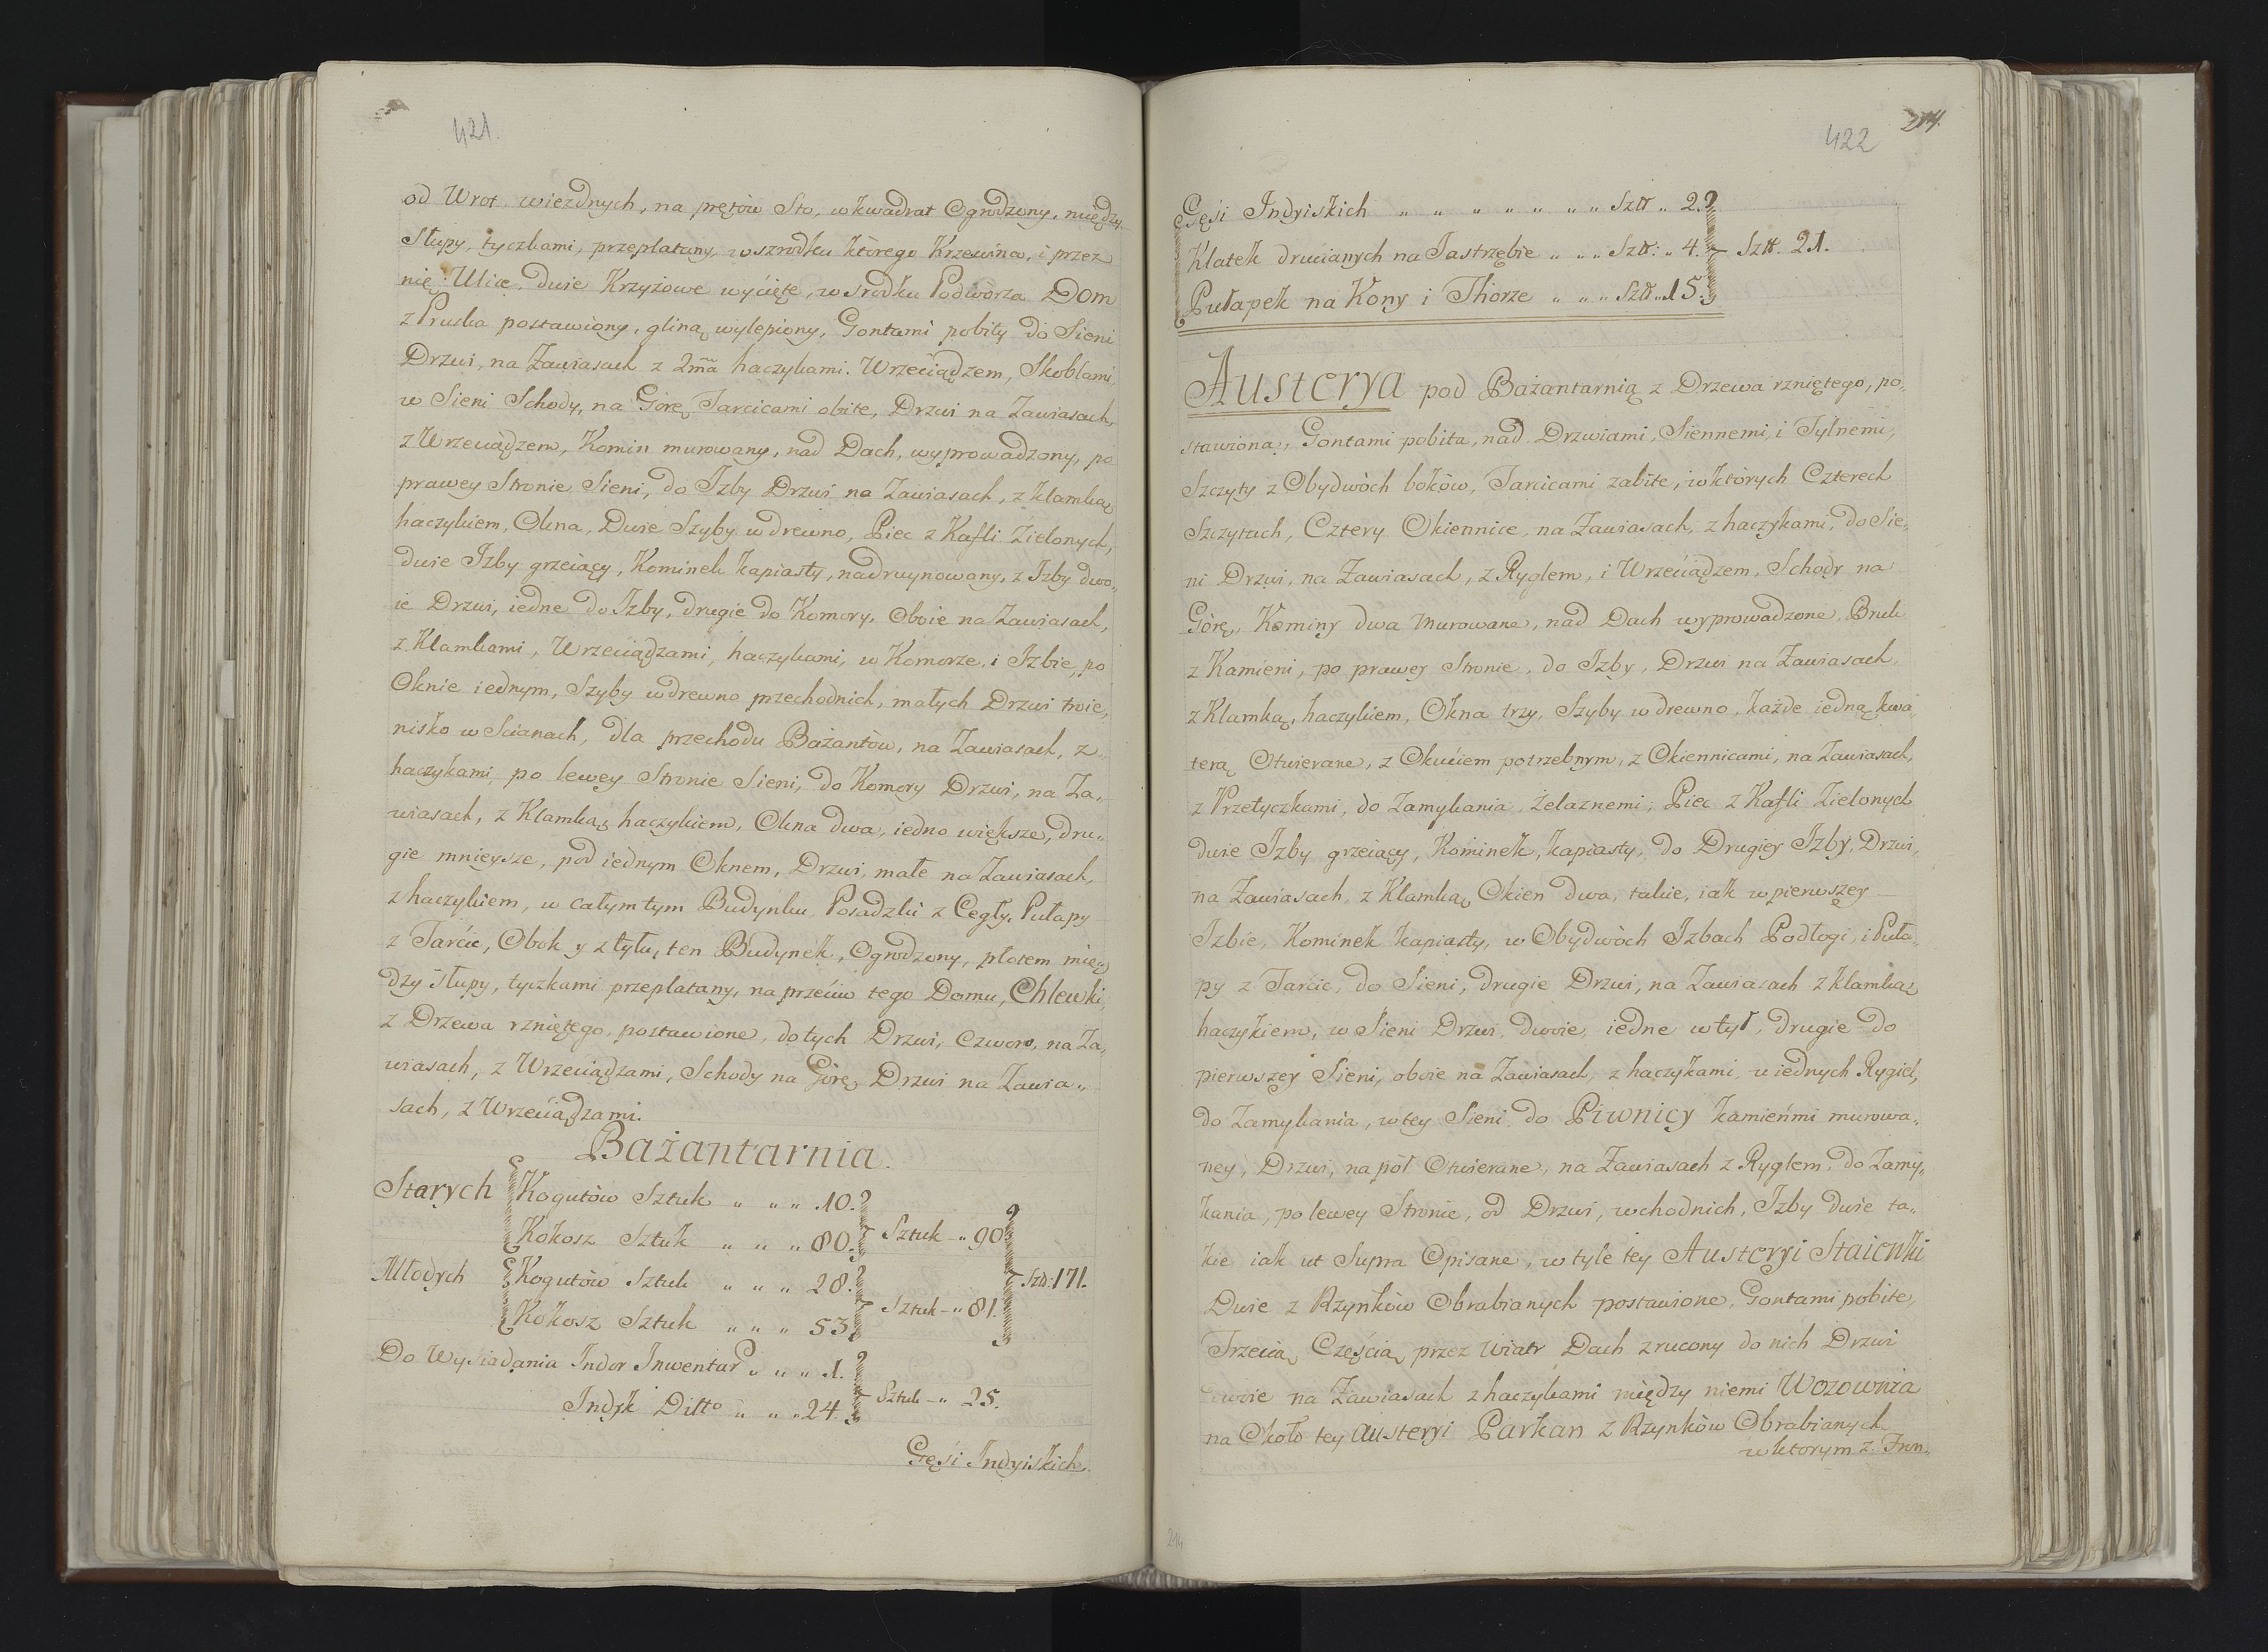 421.
od Wrot wiezdnych, na prętow Sto, wkwadrat Ogrodzony, między
Słupy, tyczkami, przeplatany, wszrodku ktorego Krzewina, i przez
nię Ulice dwie Krzyżowe wycięte, w srodku Podworza Dom
z Pruska postawiony, gliną wylepiony, Gontami pobity do Sieni
Drzwi, na Zawiasach z 2ma haczykami. Wrzeciądzem, Skoblami,
w Sieni Schody, na Górę, Tarcicami obite, Drzwi na Zawiasach,
z Wrzeciądzem, Komin murowany, nad Dach, wyprowadzony, po
prawey Stronie Sieni, do Izby Drzwi na Zawiasach, z klamką
haczykiem, Okna, Dwie Szyby w drewno, Piec z Kafli Zielonych,
dwie Izby grzeiący, Kominek kapiasty, nadruynowany, z Izby dwo„
ie Drzwi, iedne do Izby, drugie do Komory, Oboie na Zawiasach,
z Klamkami, Wrzeciądzami, haczykami, w Komorze, i Izbie, po
Oknie iednym, Szyby w drewno przechodnich, małych Drzwi troie,
nisko w Scianach, dla przechodu Bażantów, na Zawiasach, z
haczykami, po lewey Stronie Sieni, do Komory Drzwi, na Za„
wiasach, z Klamką, haczykiem, Okna dwa, iedno większe, dru„
gie mnieysze, pod iednym Oknem, Drzwi, małe na Zawiasach,
z haczykiem, w całym tym Budynku Posadzki z Cegły, Pułapy
z Tarcic, Obok y z tyłu, ten Budynek, Ogrodzony, płotem mię„
dzy słupy, tyczkami przeplatany, na przeciw tego Domu, Chlewki
z Drzewa rzniętego, postawione, do tych Drzwi, czworo, na Za„
wiasach, z Wrzeciądzami, Schody na Górę, Drzwi na Zawia„
sach, z Wrzeciądzami.
Bażantarnia.
Starych Kogutów Sztuk „ „ „ 10.
Kokosz Sztuk „ „ „ 80. Sztuk „ 90.
Młodych Kogutów Sztuk „ „ „ 28. Szt: 171.
Kokosz Sztuk „ „ „ 53. Sztuk „ 81.
Do Wysiadania Indor Inwentar „ „ „ 1.
Indyk Ditto „ „ „ 24. Sztuk „ 25.
Gęsi Indyiskich.
422 214.
Gęsi Indyiskich „ „ „ „ „ „ „ Szt „ 2.
Klatek drucianych na Jastrzębie „ „ „ Szt: „ 4. Szt. 21.
Pułapek na Kony i Thorze „ „ „ Szt „ 15.
Austerya pod Bażantarnią z Drzewa rzniętego, po„
stawiona, Gontami pobita, nad Drzwiami, Siennemi, i Tylnemi,
Szczyty z Obydwóch boków, Tarcicami zabite, w których Czterech
Szczytach, Cztery Okiennice, na Zawiasach, z haczykami, do Sie„
ni Drzwi, na Zawiasach, z Ryglem, i Wrzeciądzem, Schody na
Górę, Kominy dwa Murowane, nad Dach wyprowadzone, Bruk
z Kamieni, po prawey Stronie, do Izby, Drzwi na Zawiasach,
z Klamką, haczykiem, Okna trzy, Szyby w drewno, każde iedną kwa„
terą Otwierane, z Okuciem potrzebnym, z Okiennicami, na Zawiasach,
z Przetyczkami, do Zamykania, Żelaznemi, Piec z Kafli Zielonych
dwie Izby grzeiący, Kominek, kapiasty, do Drugiey Izby, Drzwi,
na Zawiasach, z Klamką, Okien dwa, takie, iak w pierwszey
Izbie, Kominek kapiasty, w Obydwóch Izbach Podłogi, i Puła„
py z Tarcic, do Sieni, drugie Drzwi, na Zawiasach z klamką
haczykiem, w Sieni Drzwi, dwoie, iedne w tył, drugie do
pierwszey Sieni, oboie na Zawiasach, z haczykami, w iednych Rygiel,
do Zamykania, w tey Sieni, do Piwnicy kamieńmi murowa„
ney, Drzwi, na pół Otwierane, na Zawiasach z Ryglem, do Zamy„
kania, po lewey Stronie, od Drzwi, wchodnich, Izby dwie ta„
kie iak ut Supra Opisane, w tyle tey Austeryi Staienki
Dwie z Rzynków Obrabianych postawione, Gontami pobite,
Trzecią Częścią przez wiatr Dach zrucony do nich Drzwi
dwoie na Zawiasach z haczykami między niemi Wozownia
na Około tey Austeryi Parkan z Rzynków Obrabianych
w ktorym z Fron„
214